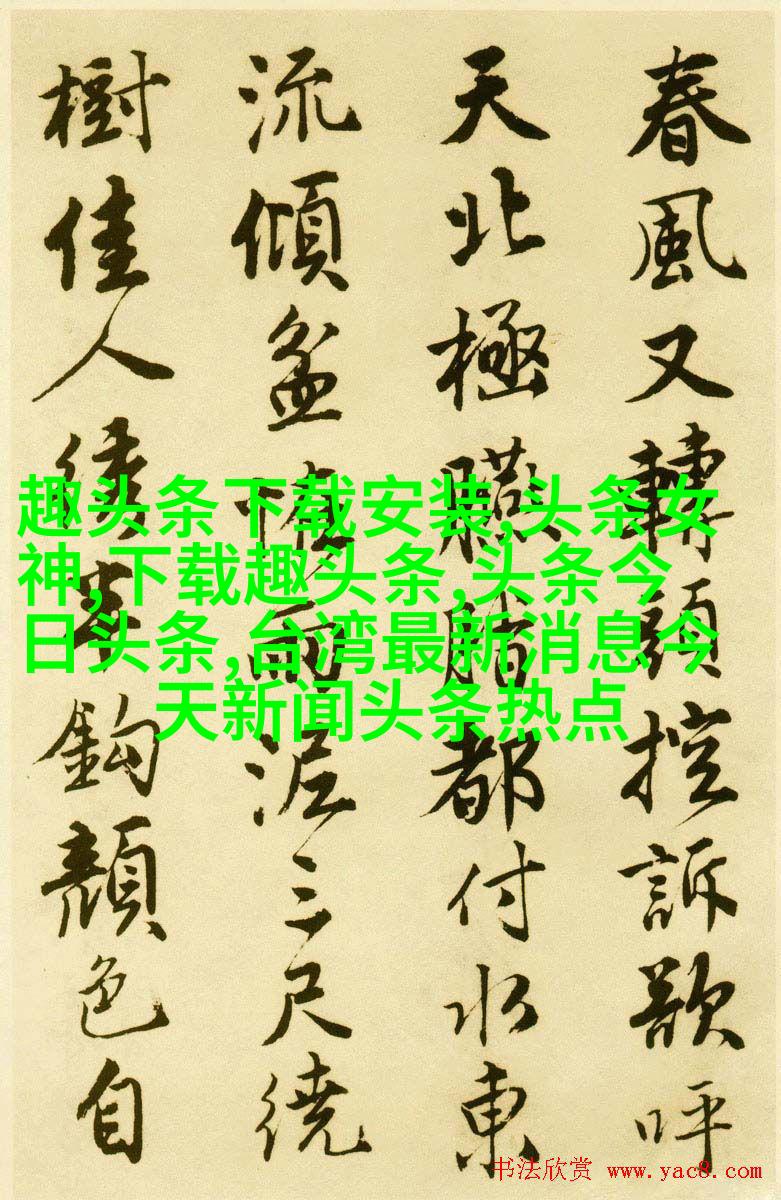 春風又轉頭控訴欲呼
天北極臙脂都付水東
流傾盆怪雨泥三尺繞
樹佳人繡半鈎顏色自
趣头条下载安装,头条女
神,下载趣头条,头条今
日头条,台湾最新消息今
天新闻头条热点
书法欣赏 www.yac8.com